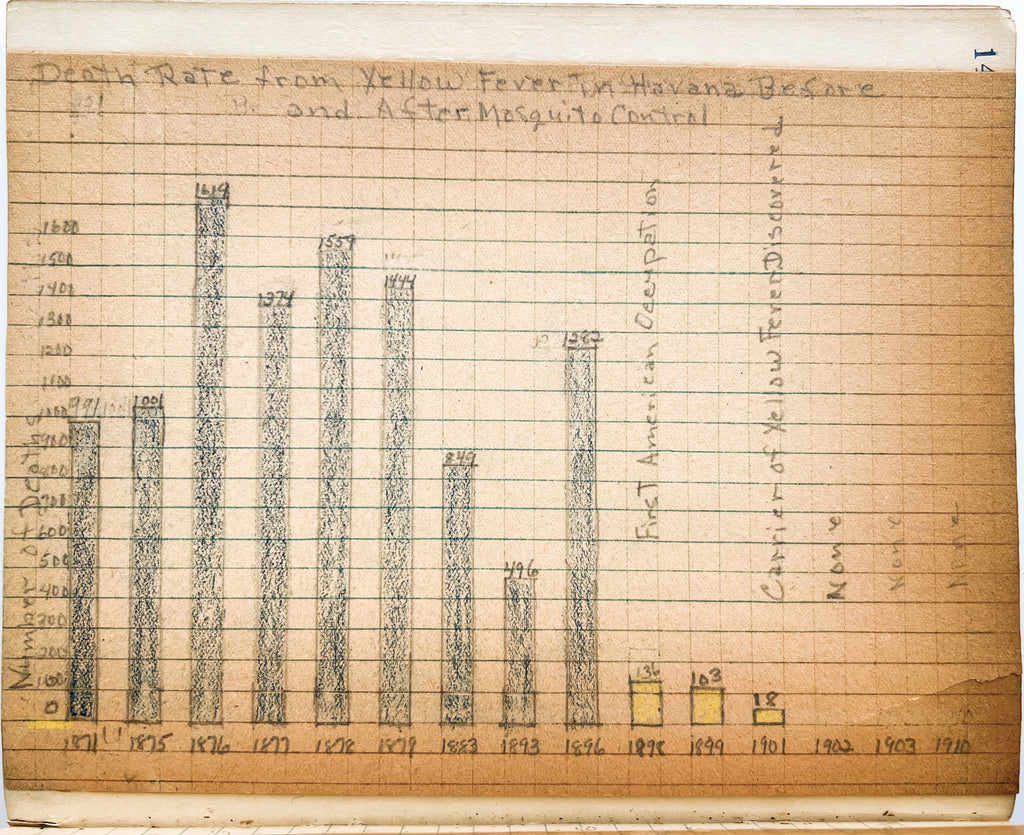 Death Rate from Yellow Fever in Havana Before
and After Mosquito Control
Number of Deaths
1600
1500
1400
1300
1200
1100
1000
900
800
700
600
500
400
300
200
100
0
991
1001
1619
1374
1559
1444
849
496
1282
136
103
18
First American Occupation
Carrier of Yellow Fever Discovered
None
None
None
1871
1875
1876
1877
1878
1879
1883
1893
1896
1898
1899
1901
1902
1903
1910